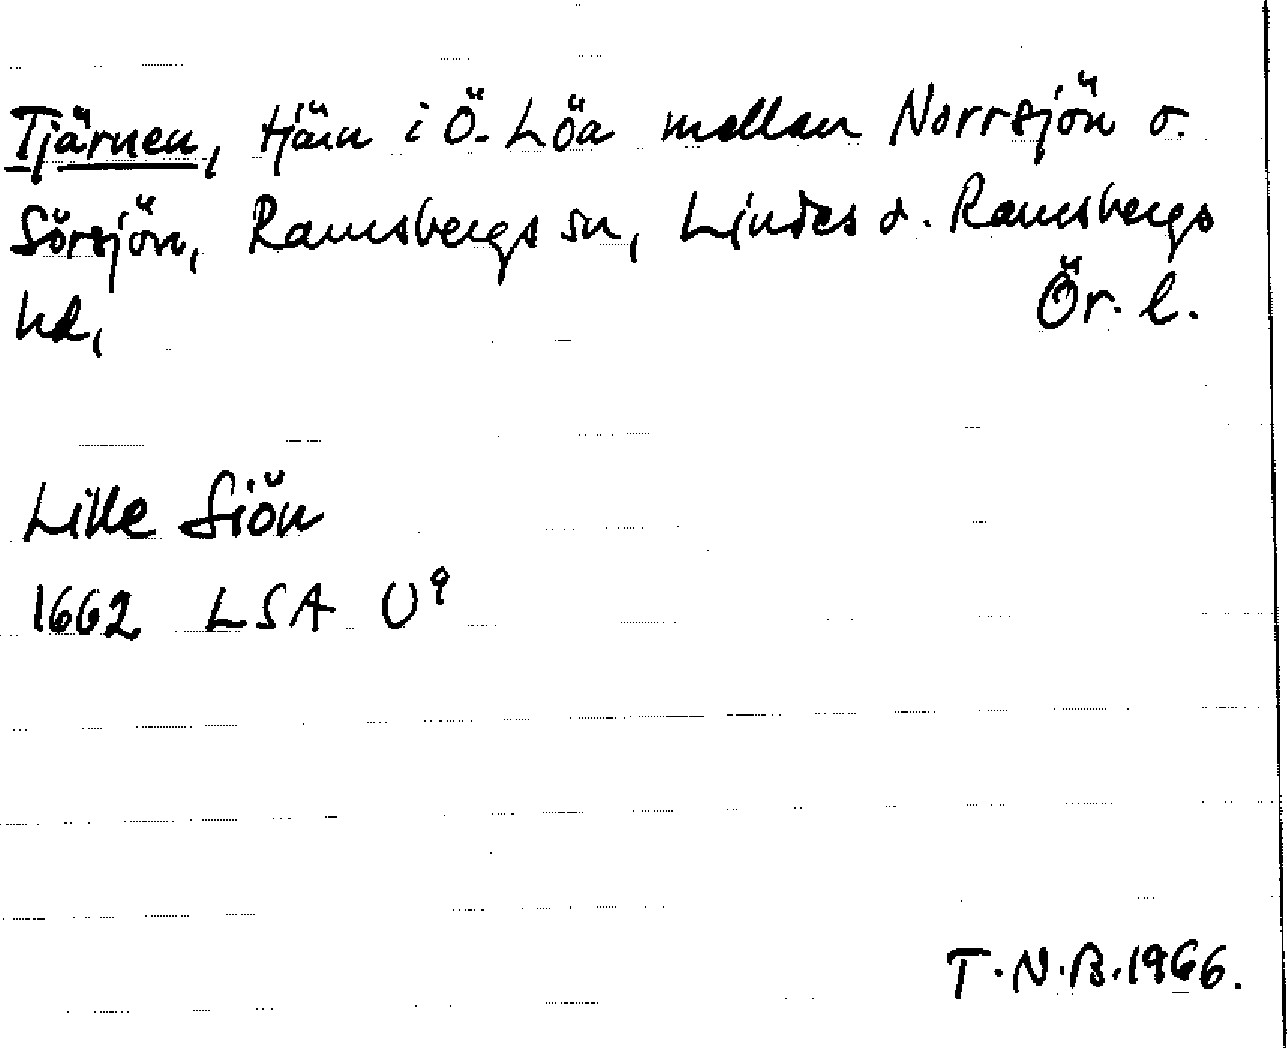 Tjärnen, tjärn i Ö. Löa mellan Norrsjön o.
Sörsjön, Ramsbergs sn, Lindes o. Ramsbergs
hd,
Ör. l.
Lille Siön
1662 LSA U9
T.N.B.1966.